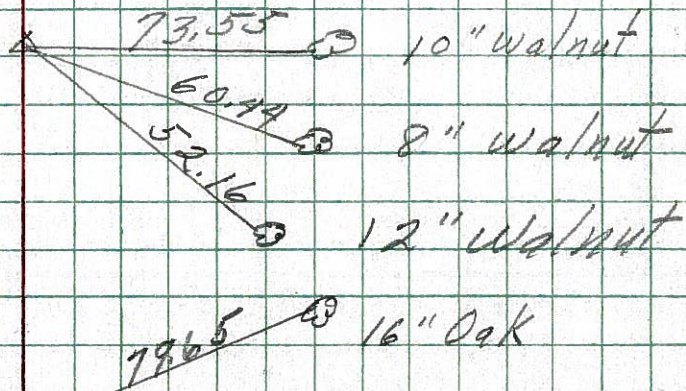 73.55 10" walnut
60.44 8" walnut
52.16 12" walnut
79.65 16" Oak